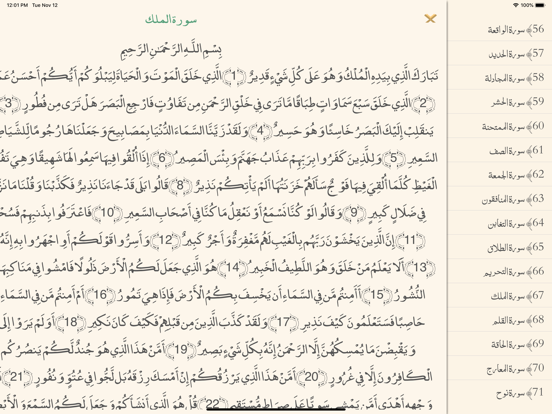 12:01 PM Tue Nov 12
100%
سورة الملك
بِسْمِ اللَّهِ الرَّحْمَٰنِ الرَّحِيمِ
تَبَارَكَ الَّذِي بِيَدِهِ الْمُلْكُ وَهُوَ عَلَىٰ كُلِّ شَيْءٍ قَدِيرٌ ﴿1﴾ الَّذِي خَلَقَ الْمَوْتَ وَالْحَيَاةَ لِيَبْلُوَكُمْ أَيُّكُمْ أَحْسَنُ
﴿2﴾ الَّذِي خَلَقَ سَبْعَ سَمَاوَاتٍ طِبَاقًا مَّا تَرَىٰ فِي خَلْقِ الرَّحْمَٰنِ مِن تَفَاوُتٍ فَارْجِعِ الْبَصَرَ هَلْ تَرَىٰ مِن فُطُورٍ ﴿3﴾
يَنقَلِبْ إِلَيْكَ الْبَصَرُ خَاسِئًا وَهُوَ حَسِيرٌ ﴿4﴾ وَلَقَدْ زَيَّنَّا السَّمَاءَ الدُّنْيَا بِمَصَابِيحَ وَجَعَلْنَاهَا رُجُومًا
السَّعِيرِ ﴿5﴾ وَلِلَّذِينَ كَفَرُوا بِرَبِّهِمْ عَذَابُ جَهَنَّمَ وَبِئْسَ الْمَصِيرُ ﴿6﴾ إِذَا أُلْقُوا فِيهَا سَمِعُوا لَهَا شَهِيقًا وَهِيَ
الْغَيْظِ كُلَّمَا أُلْقِيَ فِيهَا فَوْجٌ سَأَلَهُمْ خَزَنَتُهَا أَلَمْ يَأْتِكُمْ نَذِيرٌ ﴿8﴾ قَالُوا بَلَىٰ قَدْ جَاءَنَا نَذِيرٌ فَكَذَّبْنَا وَقُلْنَا مَا
فِي ضَلَالٍ كَبِيرٍ ﴿9﴾ وَقَالُوا لَوْ كُنَّا نَسْمَعُ أَوْ نَعْقِلُ مَا كُنَّا فِي أَصْحَابِ السَّعِيرِ ﴿10﴾ فَاعْتَرَفُوا بِذَنبِهِمْ
﴿11﴾ إِنَّ الَّذِينَ يَخْشَوْنَ رَبَّهُم بِالْغَيْبِ لَهُم مَّغْفِرَةٌ وَأَجْرٌ كَبِيرٌ ﴿12﴾ وَأَسِرُّوا قَوْلَكُمْ أَوِ اجْهَرُوا بِهِ إِنَّهُ
﴿13﴾ أَلَا يَعْلَمُ مَنْ خَلَقَ وَهُوَ اللَّطِيفُ الْخَبِيرُ ﴿14﴾ هُوَ الَّذِي جَعَلَ لَكُمُ الْأَرْضَ ذَلُولًا فَامْشُوا فِي مَنَاكِبِهَا
النُّشُورُ ﴿15﴾ أَأَمِنتُم مَّن فِي السَّمَاءِ أَن يَخْسِفَ بِكُمُ الْأَرْضَ فَإِذَا هِيَ تَمُورُ ﴿16﴾ أَمْ أَمِنتُم مَّن فِي السَّمَاءِ
حَاصِبًا فَسَتَعْلَمُونَ كَيْفَ نَذِيرِ ﴿17﴾ وَلَقَدْ كَذَّبَ الَّذِينَ مِن قَبْلِهِمْ فَكَيْفَ كَانَ نَكِيرِ ﴿18﴾ أَوَلَمْ يَرَوْا إِلَى
وَيَقْبِضْنَ مَا يُمْسِكُهُنَّ إِلَّا الرَّحْمَٰنُ إِنَّهُ بِكُلِّ شَيْءٍ بَصِيرٌ ﴿19﴾ أَمَّنْ هَٰذَا الَّذِي هُوَ جُندٌ لَّكُمْ يَنصُرُكُم
الْكَافِرُونَ إِلَّا فِي غُرُورٍ ﴿20﴾ أَمَّنْ هَٰذَا الَّذِي يَرْزُقُكُمْ إِنْ أَمْسَكَ رِزْقَهُ بَل لَّجُّوا فِي عُتُوٍّ وَنُفُورٍ ﴿21﴾
وَجْهِهِ أَهْدَىٰ أَمَّن يَمْشِي سَوِيًّا عَلَىٰ صِرَاطٍ مُّسْتَقِيمٍ ﴿22﴾ قُلْ هُوَ الَّذِي أَنشَأَكُمْ وَجَعَلَ لَكُمُ السَّمْعَ
56﴾ سورة الواقعة
57﴾ سورة الحديد
58﴾ سورة المجادلة
59﴾ سورة الحشر
60﴾ سورة الممتحنة
61﴾ سورة الصف
62﴾ سورة الجمعة
63﴾ سورة المنافقون
64﴾ سورة التغابن
65﴾ سورة الطلاق
66﴾ سورة التحريم
67﴾ سورة الملك
68﴾ سورة القلم
69﴾ سورة الحاقة
70﴾ سورة المعارج
71﴾ سورة نوح